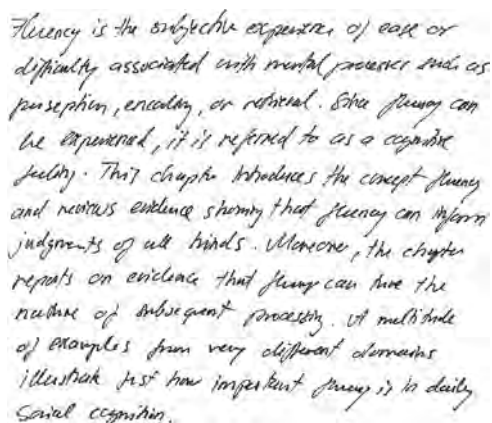 Fluency is the subjective experience of ease or
difficulty associated with mental processes such as
perseption, encoding, or retrieval. Since fluency can
be experienced, it is referred to as a cognitive
feeling. This chapter introduces the concept fluency
and reviews evidence showing that fluency can inform
judgments of all kinds. Moreover, the chapter
reports on evidence that fluency can tune the
nature of subsequent processing. A multitude
of examples from very different domains
illustrate just how important fluency is in daily
social cognition.